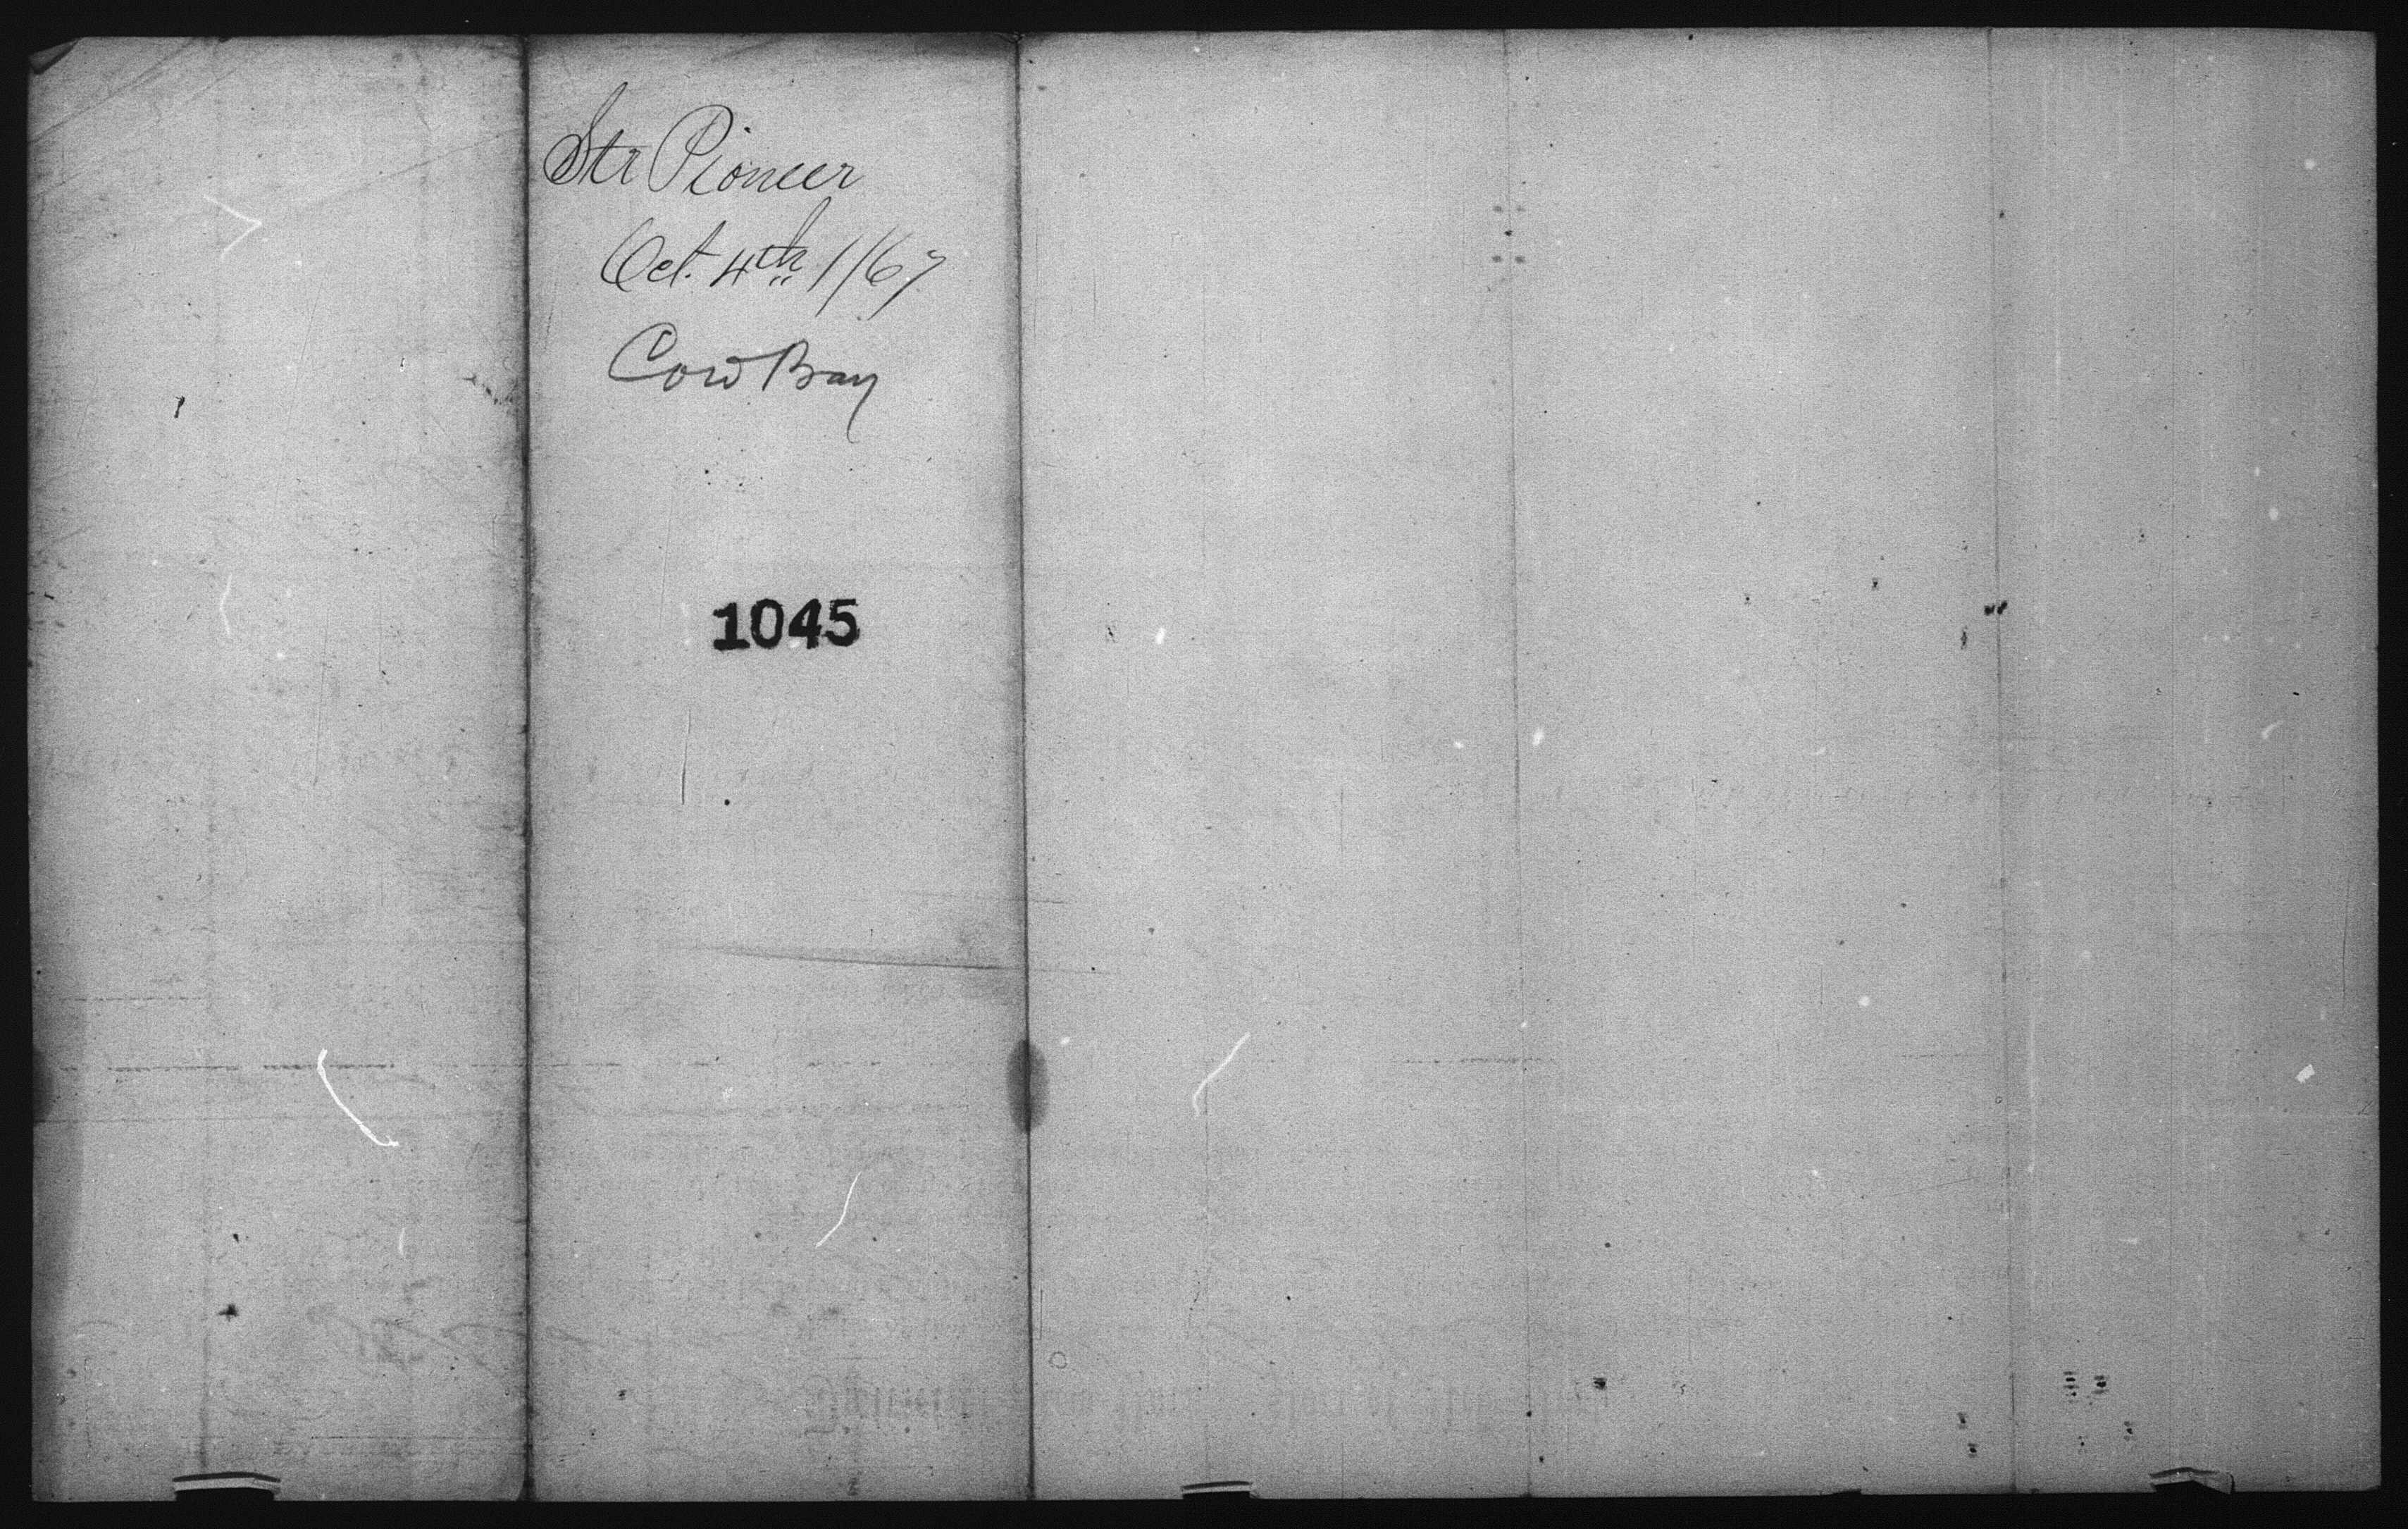 Str Pioneer
Oct. 4th 1/67
Cow Bay
1045